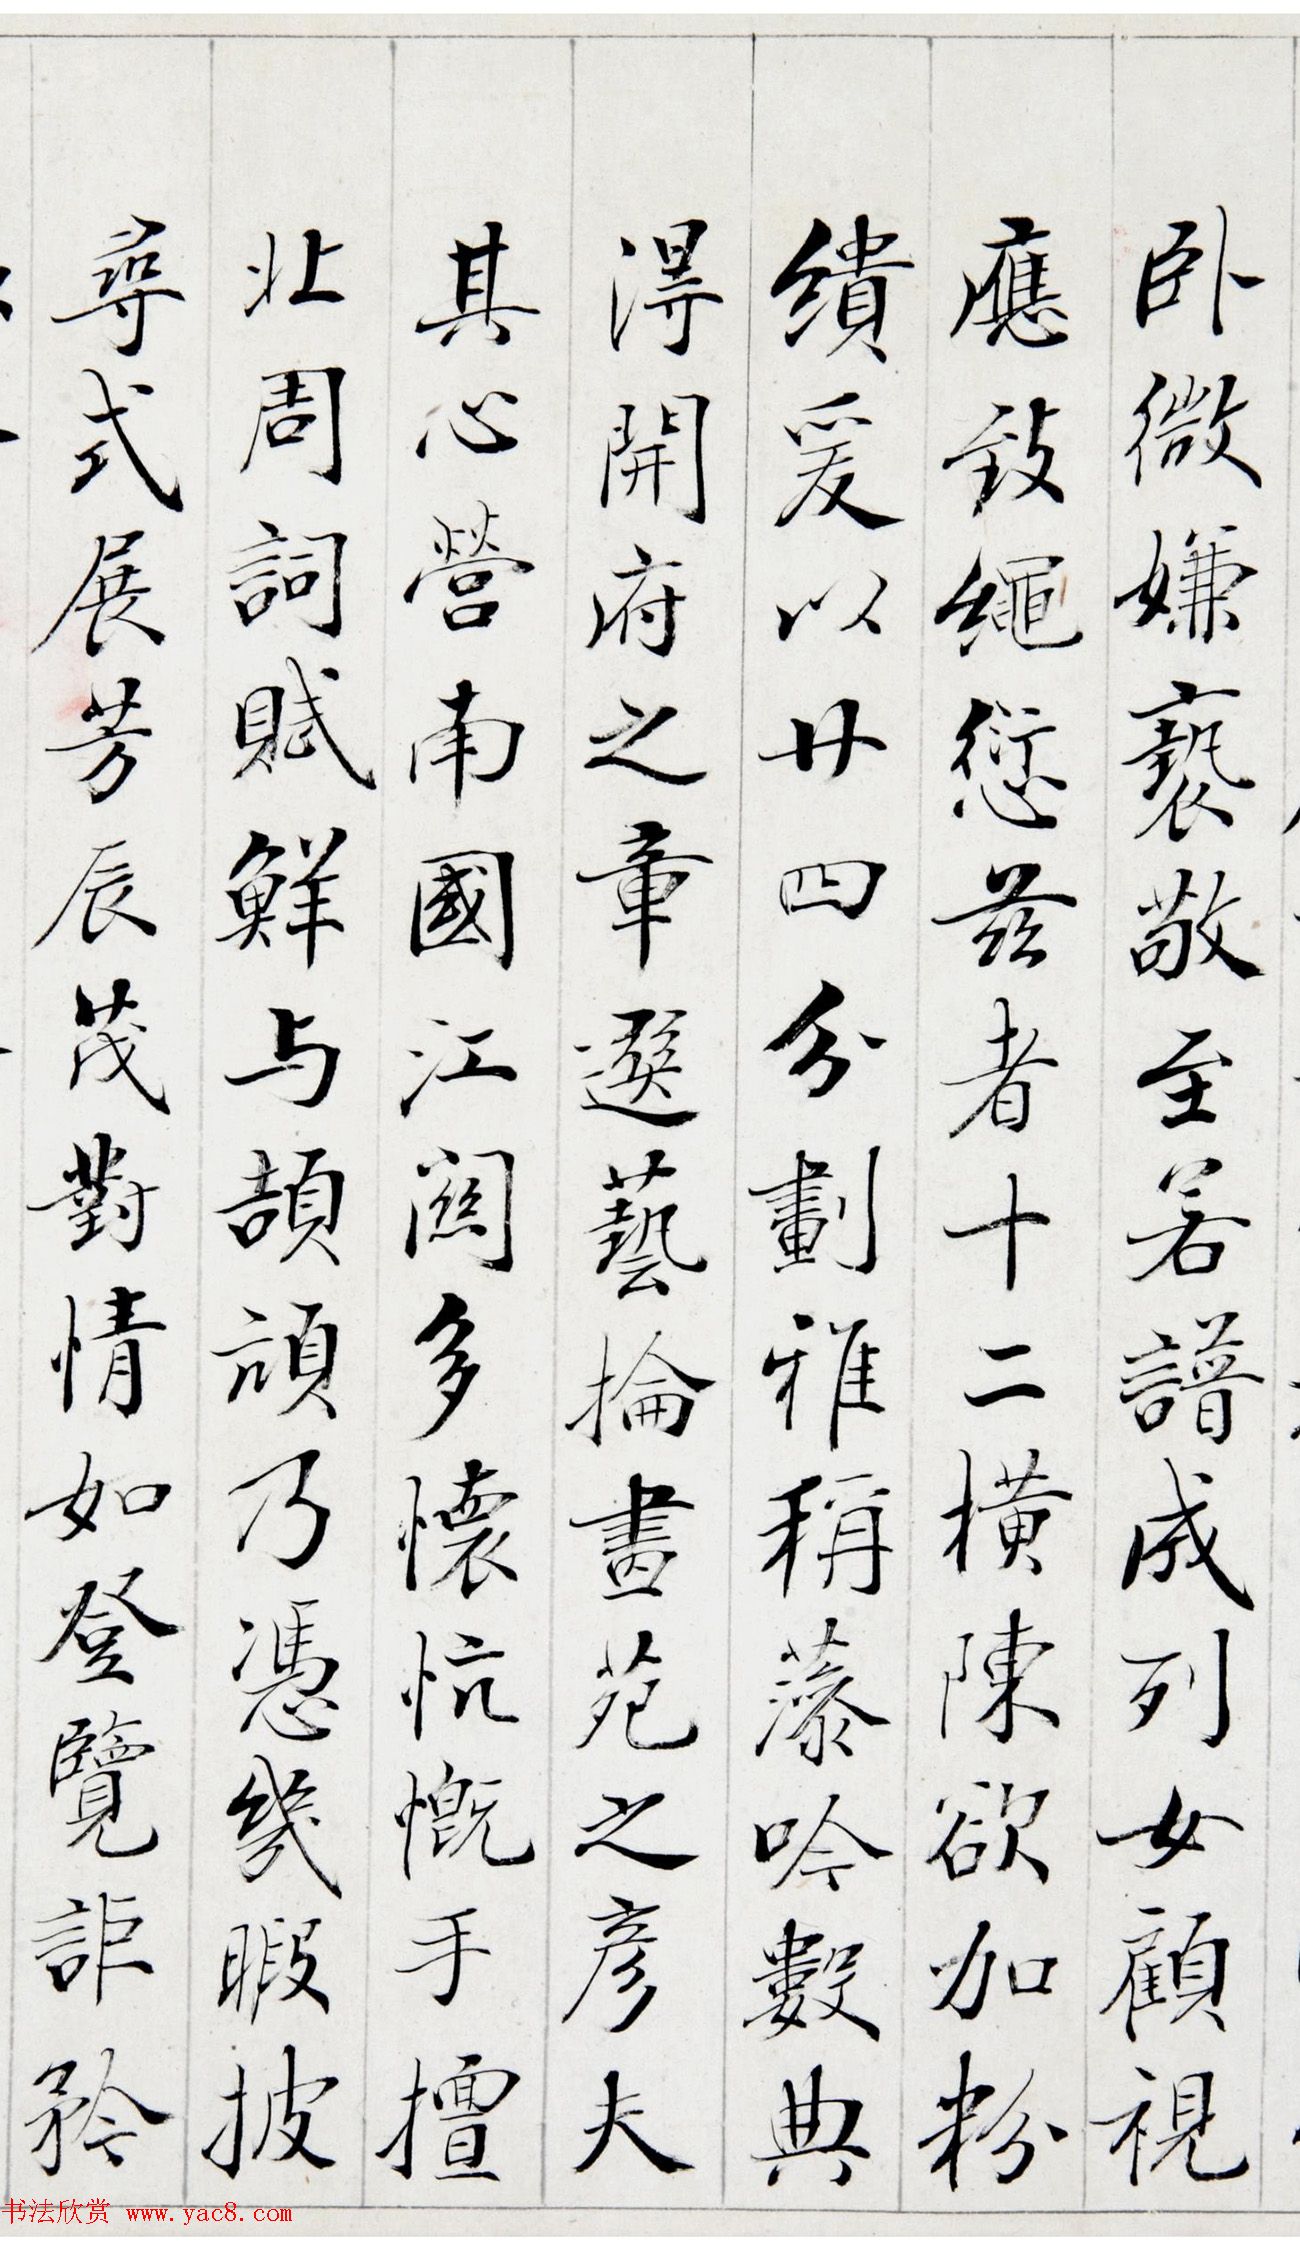 卧微嫌褻敬至若譜成列女顧視
應致繩愆茲者十二橫陳欲加粉
繢爰以廿四分劃雅稱藻吟數典
淂開府之章選藝掄畫苑之彥夫
其心營南國江関多懷忼慨手擅
北周詞賦鮮与頡頏乃憑幾暇披
尋式展芳辰茂對情如登覽詎矜
书法欣赏 www.yac8.com